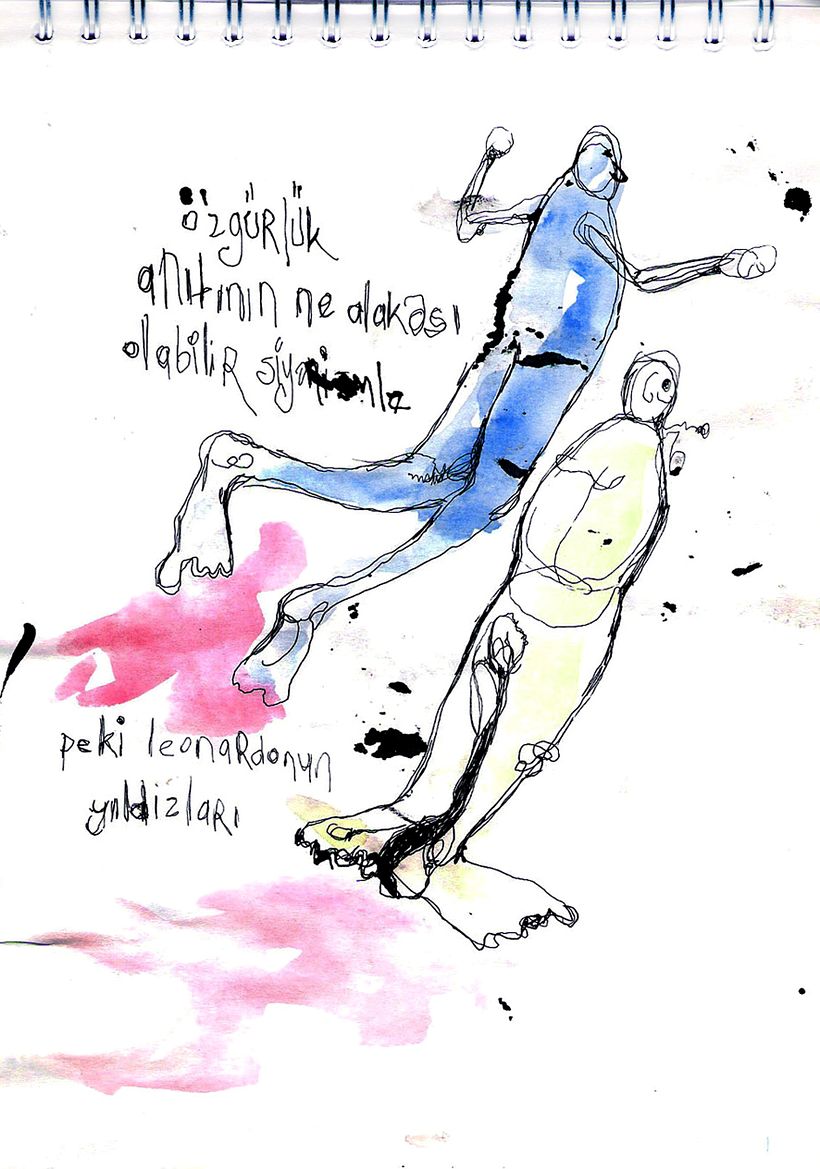 özgürlük
anıtının ne alakası
olabilir
peki leonardonun
yıldızları